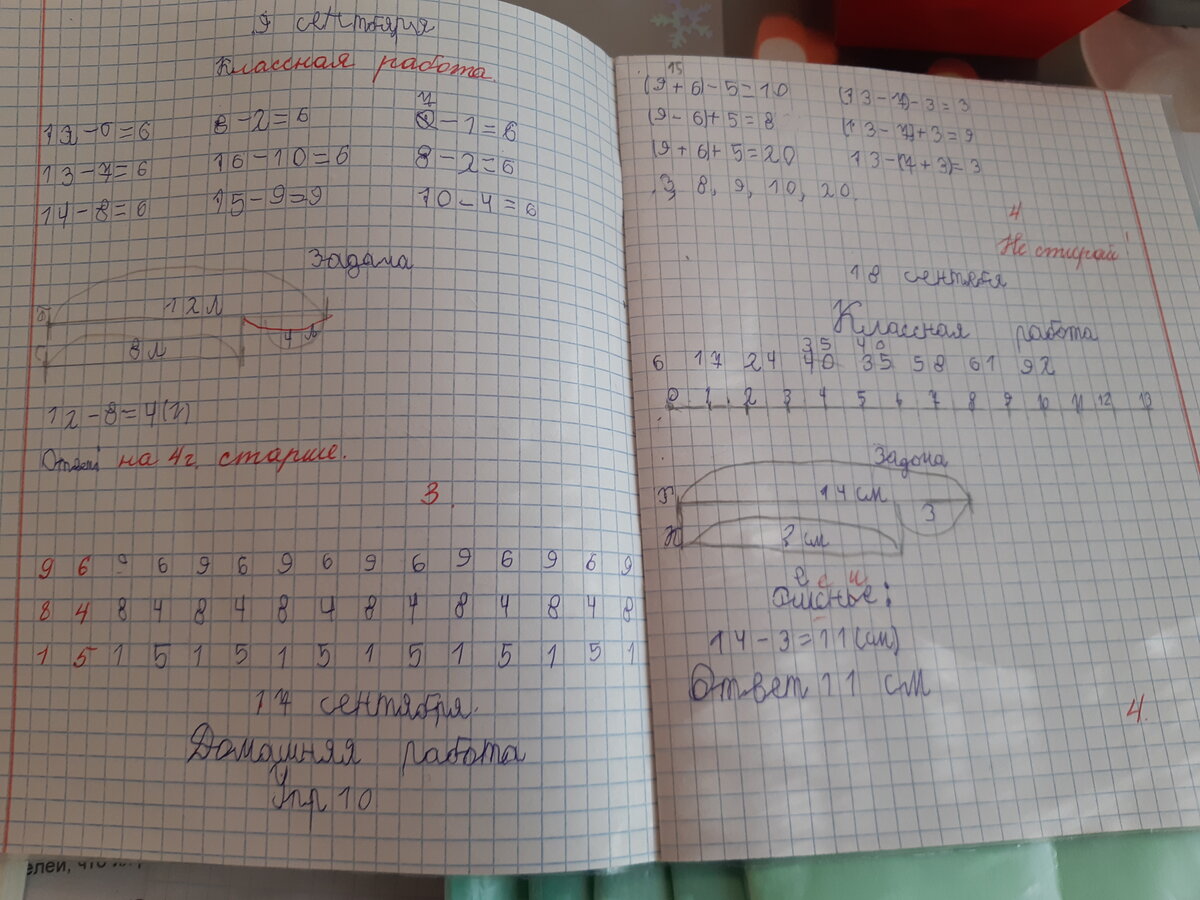 9 сентября
Классная работа.
13-0=6 8-2=6 7
8-1=6
13-7=6 16-10=6 8-2=6
14-8=6 15-9=9 10-4=6
Задача
12 л
4 л
8 л
12-8=4(г)
Ответ на 4 г. старше.
3.
9 6 9 6 9 6 9 6 9 6 9 6 9 6 9
8 4 8 4 8 4 8 4 8 4 8 4 8 4 8
1 5 1 5 1 5 1 5 1 5 1 5 1 5 1
17 сентября.
Домашняя работа
Упр 10
15
(9+6)-5=10 (13-7)-3=3
(9-6)+5=8 (13-7)+3=9
(9+6)+5=20 13-(7+3)=3
3, 8, 9, 10, 20.
4
Не стирай!
18 сентебя
Классная работа
35 40
6 17 24 40 35 58 61 92
0 1 2 3 4 5 6 7 8 9 10 11 12 13
Задача
14 см
3
К ? см
е с и
14-3=11(см)
Ответ 11 см
4.
елей, что